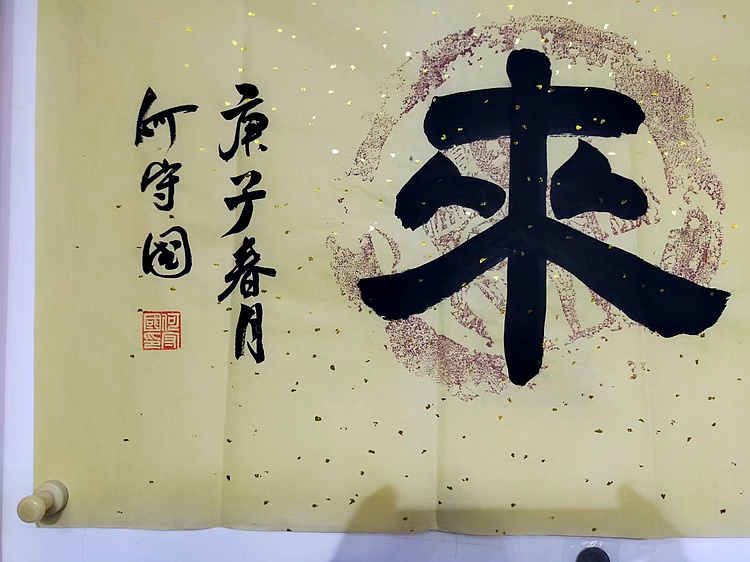 來
庚子春月
何守國
何守國印